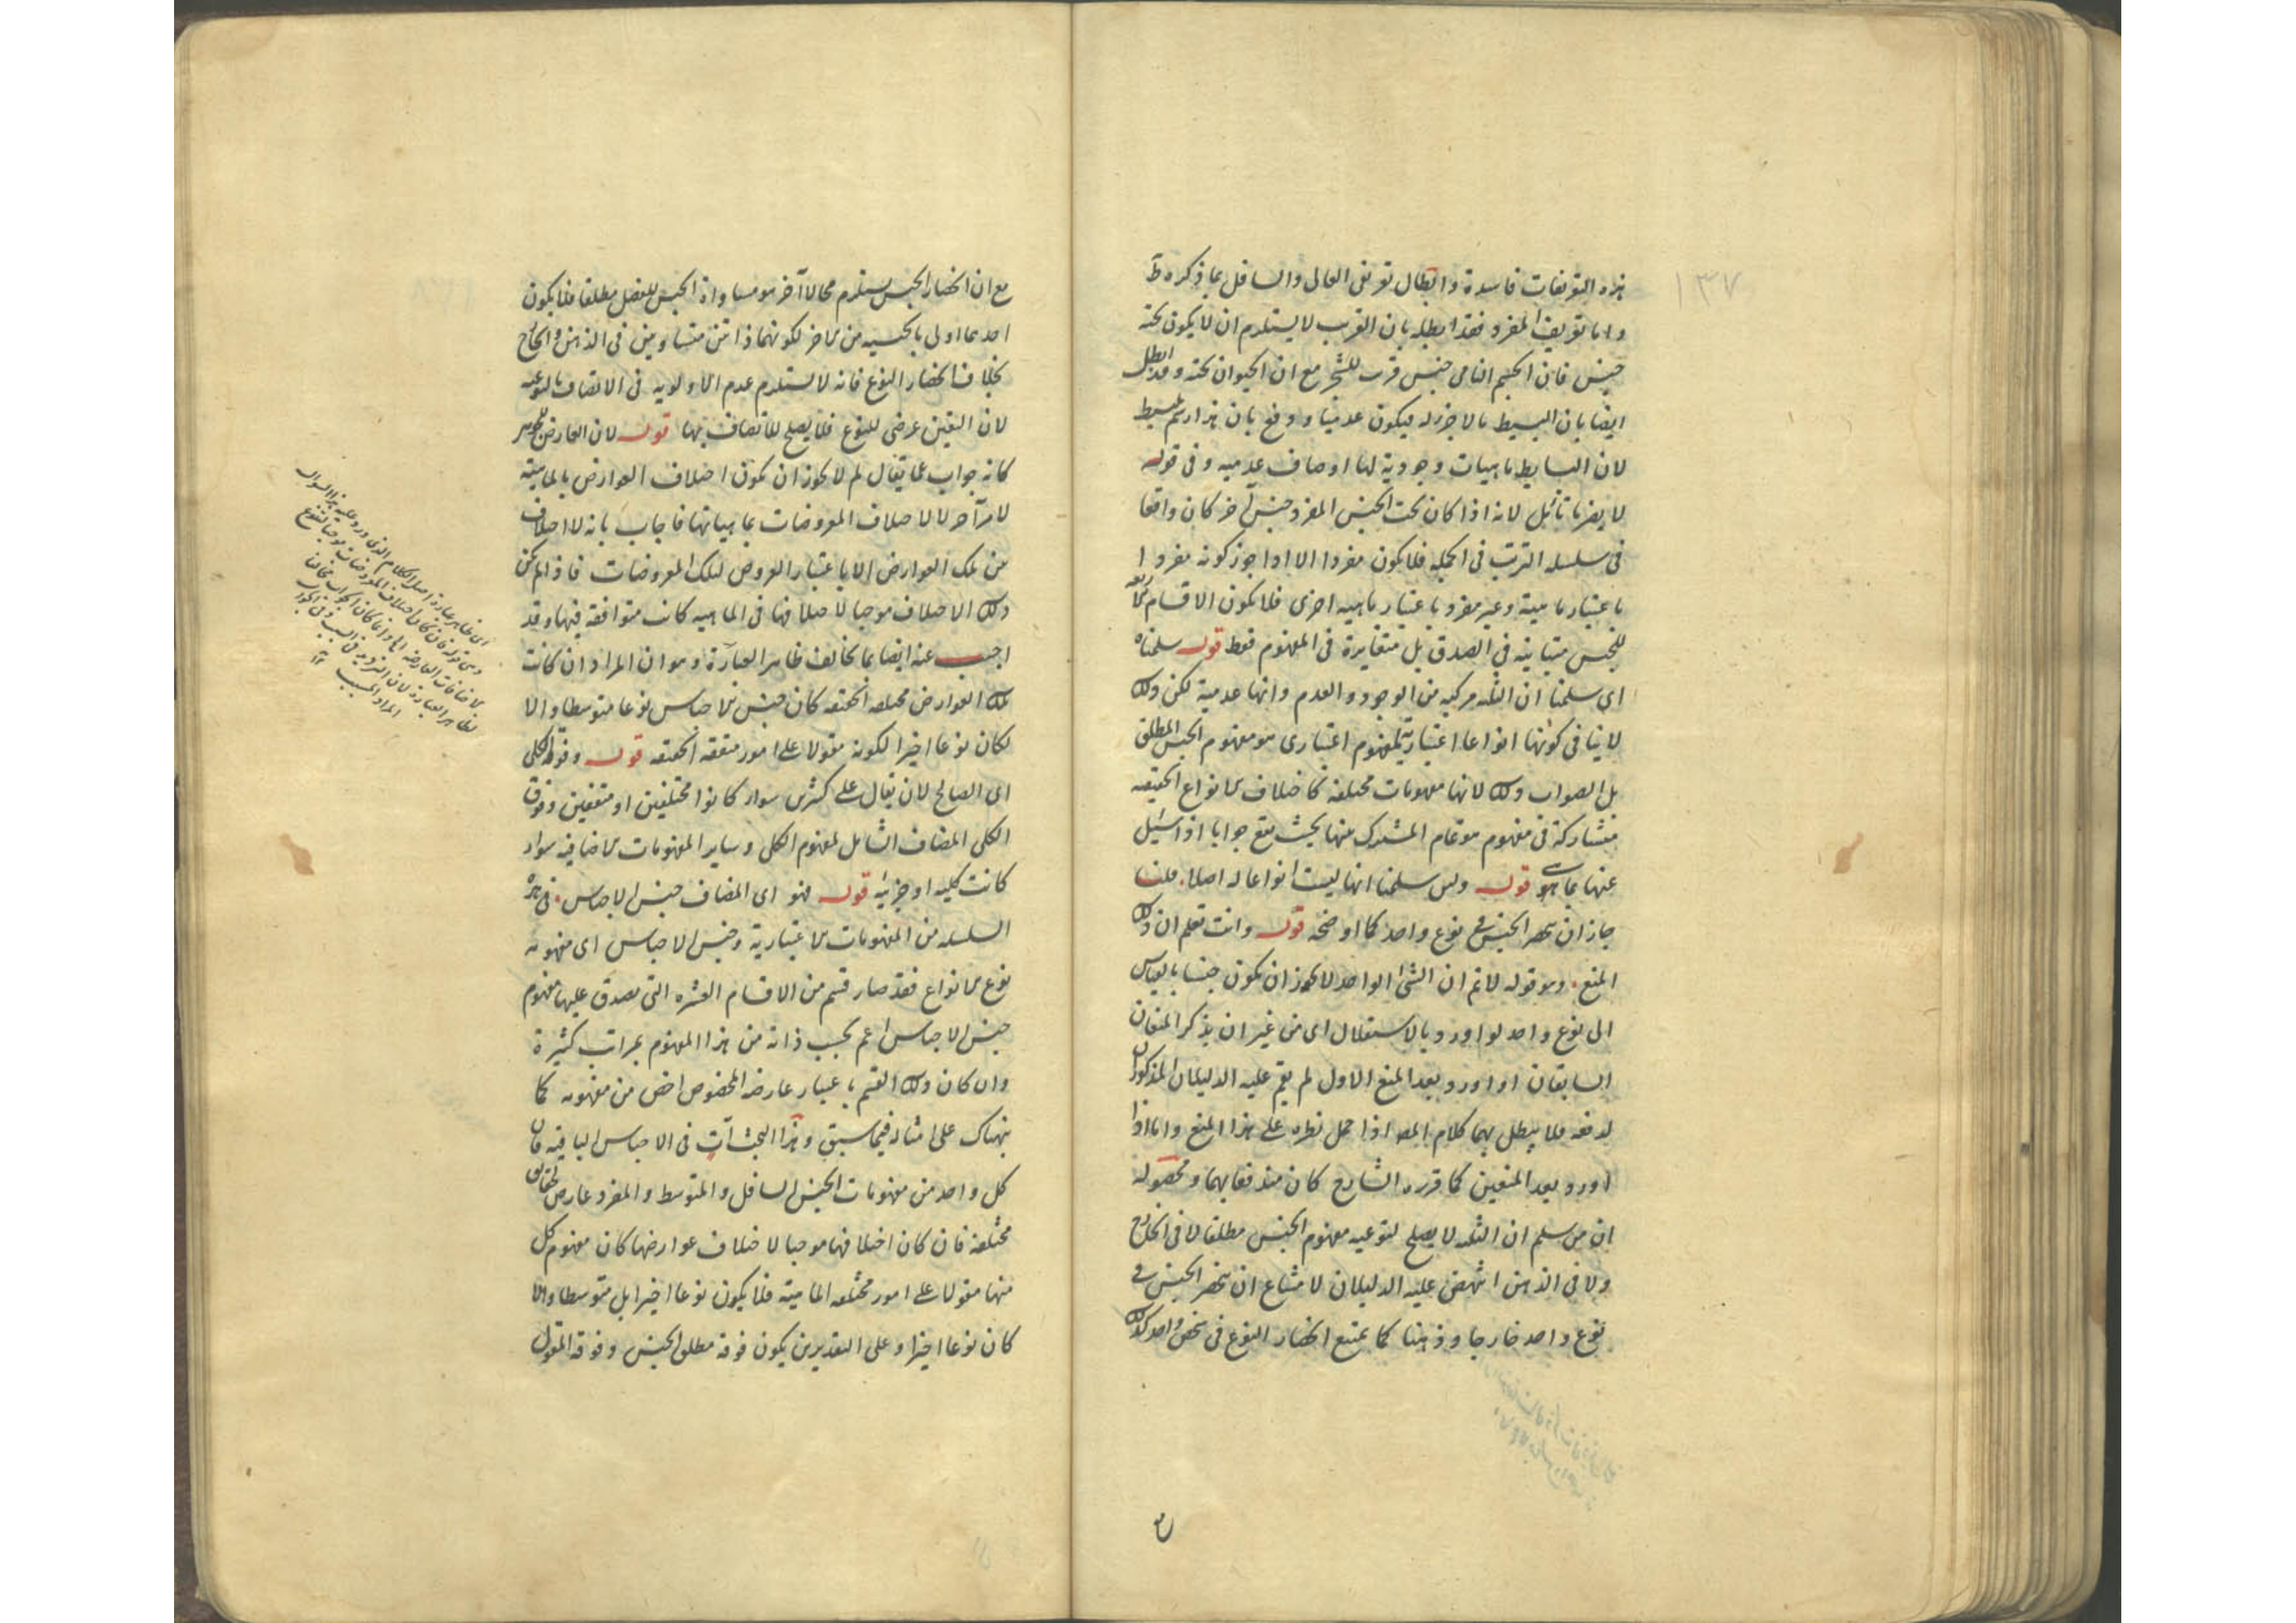 ١٣٧
هذه التعريفات فاسدة وابطال تعريفى العالى والسافل بما ذكره ظ
واما تعريف المفرد فقد ابطله بان القرب لا يستلزم ان لا يكون تحته
جنس فان الجسم النامى جنس قريب للشجر مع ان الحيوان تحته وقد ابطل
ايضا بان البسيط ما لا جزء له فيكون عدميا ودفع بان هذا رسم للبسيط
لان البسايط ماهيات وجودية لها اوصاف عدمية وفى قوله
لا يضرنا تأمل لانه اذا كان تحت الجنس المفرد جنس آخر كان واقعا
فى سلسله الترتب فى الجمله فلا يكون مفردا الا اذا جوز كونه مفردا
باعتبار ماهية وغير مفرد باعتبار ماهيه اخرى فلا يكون الاقسام الاربعة
للجنس متباينه فى الصدق بل متغايرة فى المفهوم فقط قوله سلمناه
اى سلمنا ان الثلثه مركبه من الوجود والعدم وانها عدمية لكن ذلك
لا ينافى كونها انواعا اعتبارية لمفهوم اعتبارى هو مفهوم الجنس المطلق
بل الصواب ذلك لانها مفهومات مختلفه كاختلاف الانواع الحقيقه
متشاركة فى مفهوم هو تمام المشترك بينها بحيث يقع جوابا اذا سئل
عنها بما هو قوله ولئن سلمنا انها ليست انواعا له اصلا قلنا
جاز ان ينحصر الجنس فى نوع واحد كما اوضحه قوله وانت تعلم ان ذلك
المنع وهو قوله لا نم ان الشئ الواحد لا يجوز ان يكون جنسا بالقياس
الى نوع واحد لو اورد بالاستقلال اى من غير ان يذكر المنعان
السابقان او اورد بعد المنع الاول لم يقم عليه الدليلان المذكوران
لدفعه فلا يبطل بهما كلام المص اذا حمل نظره على هذا المنع واما اذا
اورد بعد المنعين كما قرره الشارح كان مندفعا بهما ومحصوله
ان من سلم ان الثلثه لا يصلح لنوعيه مفهوم الجنس مطلقا لا فى الخارج
ولا فى الذهن انتهض عليه الدليلان لامتناع ان ينحصر الجنس فى
نوع واحد خارجا وذهنا كما يمتنع انحصار النوع فى شخص واحد كذلك
مع ان انحصار الجنس يستلزم محالا آخر هو مساواة الجنس للفصل مطلقا فلا يكون
احدهما اولى بالجنسيه من الاخر لكونهما ذاتيين متساويين فى الذهن والخارج
بخلاف انحصار النوع فانه لا يستلزم عدم الاولويه فى الاتصاف بالنوعيه
لان التعين عرضى للنوع فلا يصلح للاتصاف بها قوله لان العارض
كانه جواب عما يقال لم لا يجوز ان يكون اختلاف العوارض بالماهية
لامر آخر لا لاختلاف المعروضات بماهياتها فاجاب بانه لا اختلاف
من تلك العوارض الا باعتبار العروض لتلك المعروضات فاذا لم يكن
ذلك الاختلاف موجبا لاختلافها فى الماهيه كانت متوافقه فيها وقد
اجيب عنه ايضا بما يخالف ظاهر العبارة وهو ان المراد ان كانت
تلك العوارض مختلفه الحقيقه كان جنس الاجناس نوعا متوسطا والا
لكان نوعا اخيرا لكونه مقولا على امور متفقه الحقيقه قوله وفوقه الكلى
اى الصالح لان يقال على كثيرين سواء كانوا مختلفين او متفقين وفوق
الكلى المضاف الشامل لمفهوم الكلى وساير المفهومات الاضافيه سواء
كانت كليه او جزئيه قوله فهو اى المضاف جنس الاجناس فى هذه
السلسله من المفهومات الاعتبارية وجنس الاجناس اى مفهومه
نوع الانواع فقد صار قسم من الاقسام العشره التى يصدق عليها مفهوم
جنس الاجناس اعم بحسب ذاته من هذا المفهوم بمراتب كثيرة
وان كان ذلك القسم باعتبار عارضه المخصوص اخص من مفهومه كما
نبهناك على امثاله فيما سبق وهذا البحث آت فى الاجناس الباقيه فان
كل واحد من مفهومات الجنس السافل والمتوسط والمفرد عارض لحقايق
مختلفه فان كان اختلافها موجبا لاختلاف عوارضها كان مفهوم كل
منها مقولا على امور مختلفه الماهية فلا يكون نوعا اخيرا بل متوسطا والا
كان نوعا اخيرا وعلى التقديرين يكون فوقه مطلق الجنس وفوقه المقول